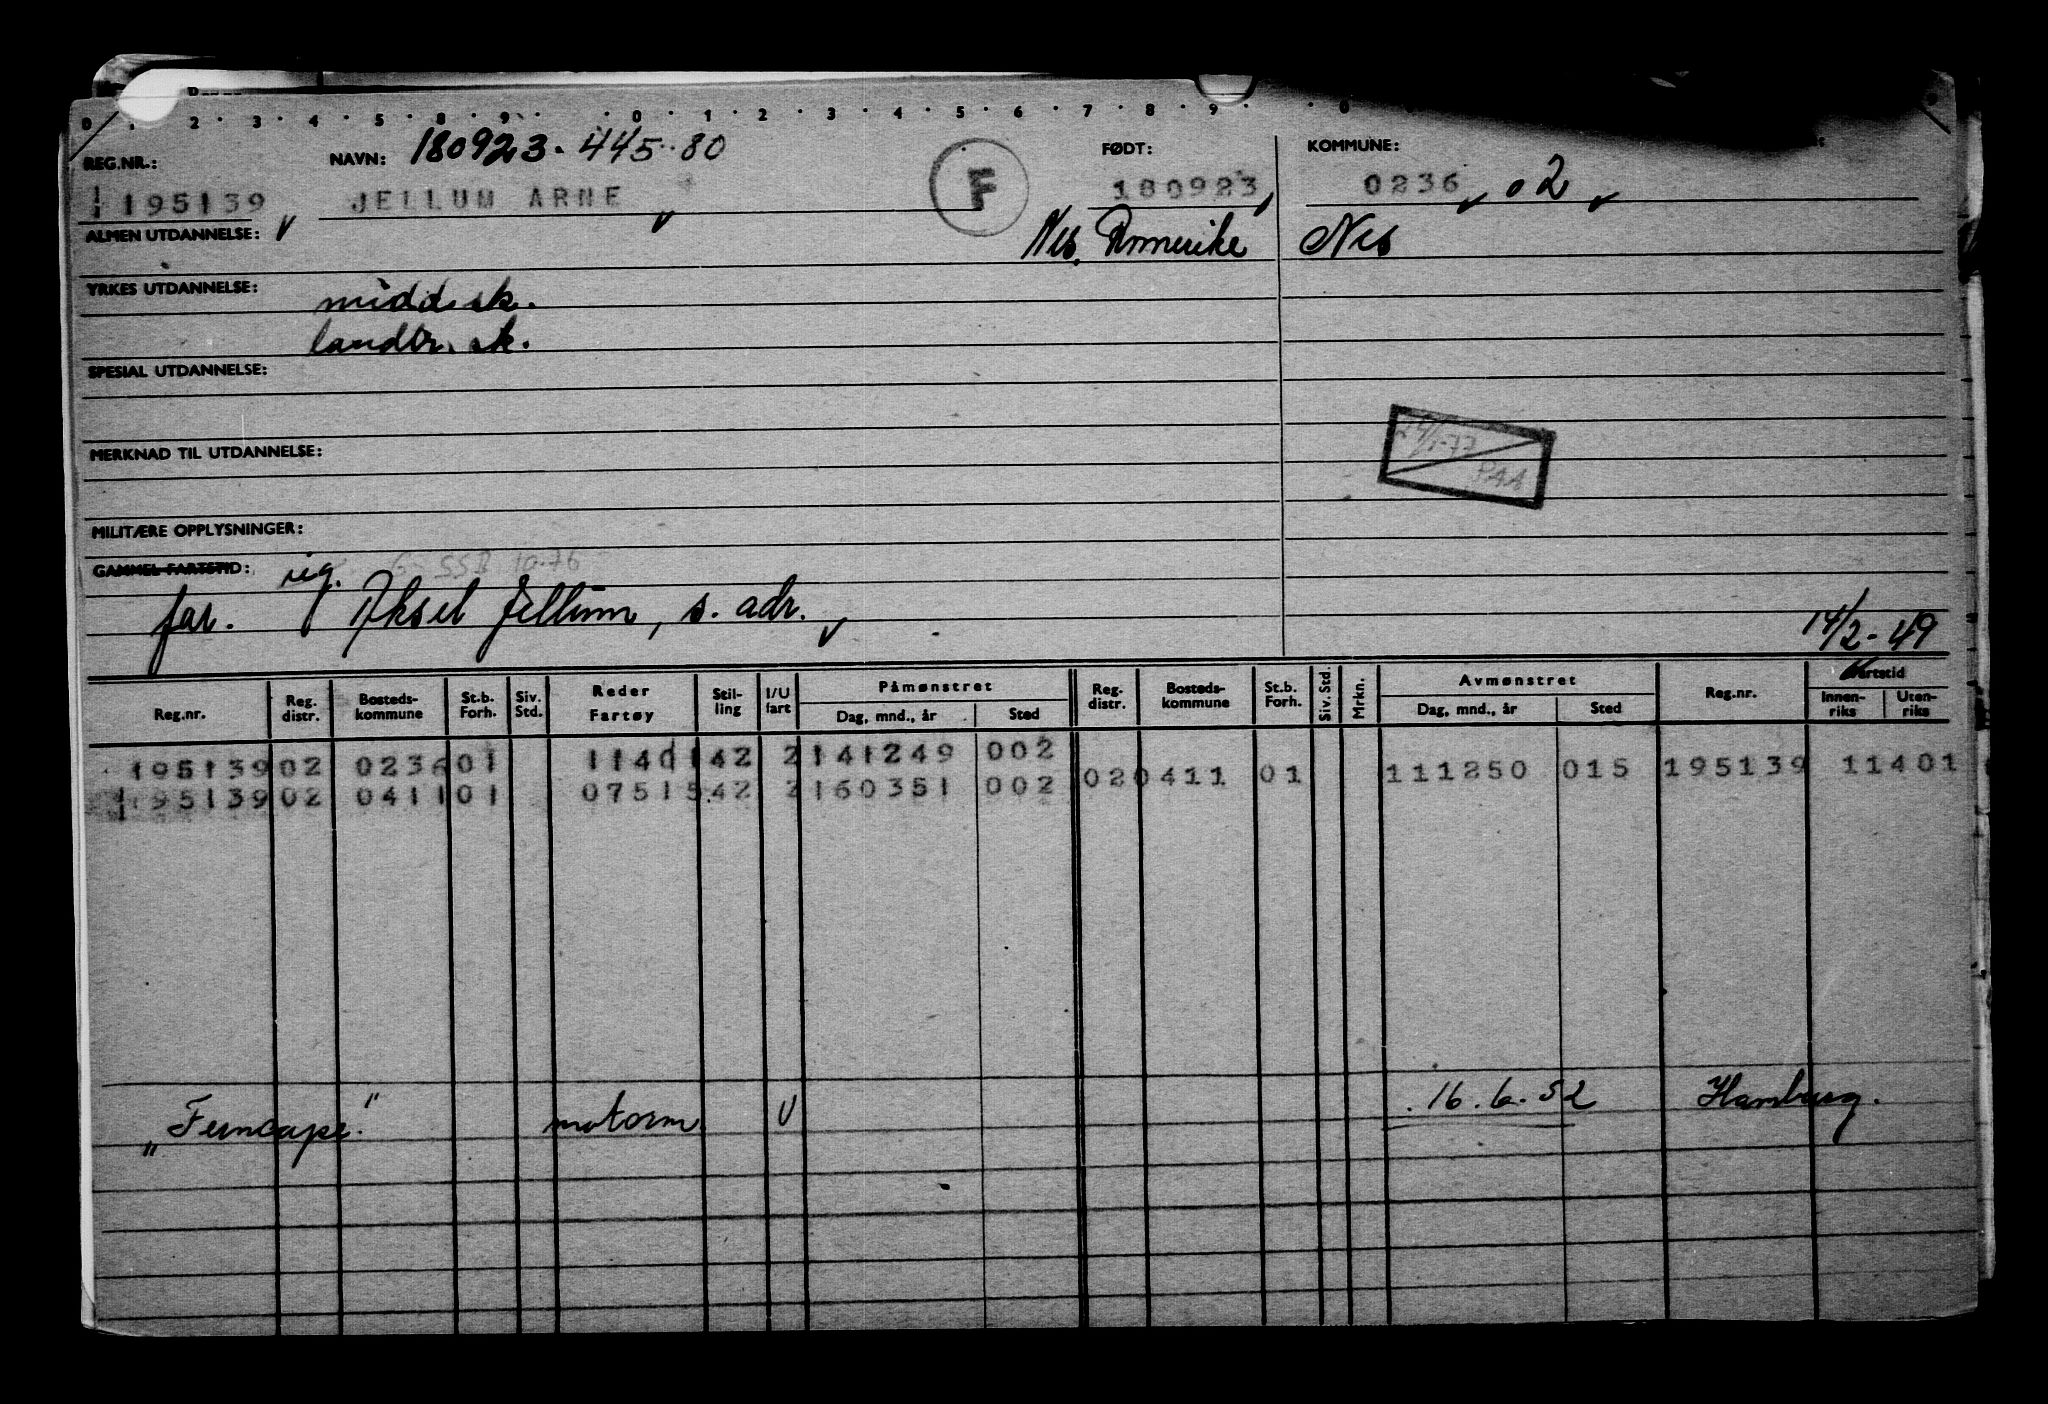 0 1 2 3 4 5 8 9 0 1 2 3 4 5 6 7 8 9 0
REG.NR.: NAVN: 180923. 445.80 FØDT: KOMMUNE:
195139 JELLUM ARNE F 180923 0236 02
ALMEN UTDANNELSE: Nes, Romerike Nes
YRKES UTDANNELSE: midd.sk.
landbr. sk.
SPESIAL UTDANNELSE:
14/1-77
PAA
MERKNAD TIL UTDANNELSE:
MILITÆRE OPPLYSNINGER:
GAMMEL FARTSTID: rig. SSB 10-76
far. Aksel Jellum, s. adr. 14/2-49
Reg.nr. Reg. distr. Bosteds-kommune St.b. Forh. Siv. Std. Reder Fartøy Stil-ling I/U fart Påmønstret Dag, mnd., år Sted Reg. distr. Bosteds-kommune St.b. Forh. Siv. Std. Mrkn. Avmønstret Dag, mnd., år Sted Reg.nr. Fartstid Innen-riks Uten-riks
195139 02 0236 01 11401 42 2 141249 002 02 0411 01 111250 015 195139 11401
195139 02 0411 01 07515 42 2 160351 002
„Ferncape." motorm. U 16.6.52 Hamburg.